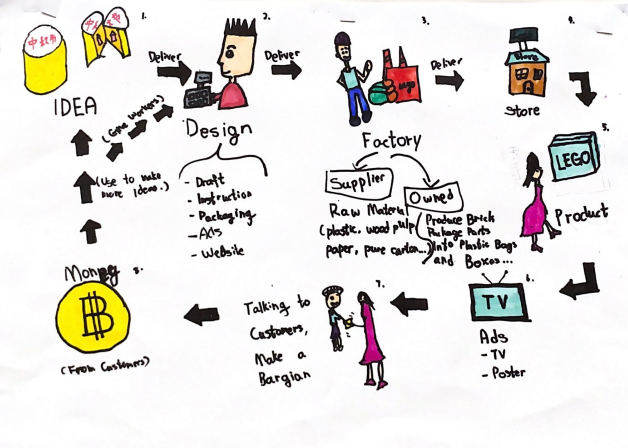 1.
IDEA
Deliver
2.
Design
- Draft
- Instruction
- Packaging
- Ads
- Website
Deliver
3.
Factory
Supplier
Raw Material
(plastic, wood pulp
paper, pure carton...)
Owned
(Produce Brick
Package Parts
Into Plastic Bags
and Boxes...
Deliver
4.
Store
Store
5.
LEGO
Product
6.
TV
Ads
- TV
- Poster
7.
Talking to
Customers,
Make a
Bargian
8.
Money
(From Customers)
(Use to make
more Ideas.)
(Give workers)